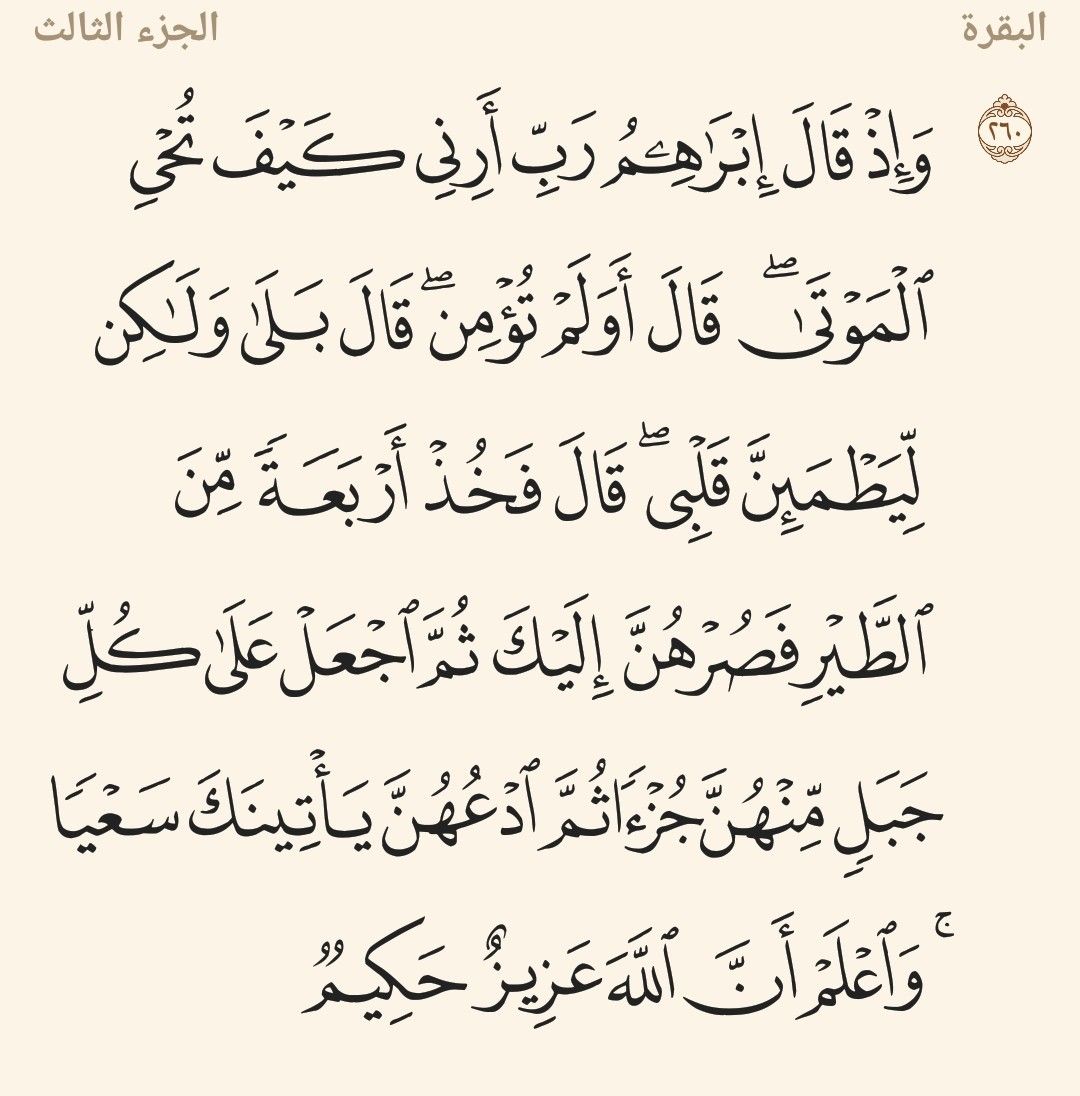 البقرة الجزء الثالث
٢٦٠ وَإِذۡ قَالَ إِبۡرَٰهِـۧمُ رَبِّ أَرِنِي كَيۡفَ تُحۡيِ
ٱلۡمَوۡتَىٰۖ قَالَ أَوَلَمۡ تُؤۡمِنۖ قَالَ بَلَىٰ وَلَٰكِن
لِّيَطۡمَئِنَّ قَلۡبِيۖ قَالَ فَخُذۡ أَرۡبَعَةٗ مِّنَ
ٱلطَّيۡرِ فَصُرۡهُنَّ إِلَيۡكَ ثُمَّ ٱجۡعَلۡ عَلَىٰ كُلِّ
جَبَلٖ مِّنۡهُنَّ جُزۡءٗا ثُمَّ ٱدۡعُهُنَّ يَأۡتِينَكَ سَعۡيٗا
ۚ وَٱعۡلَمۡ أَنَّ ٱللَّهَ عَزِيزٌ حَكِيمٞ